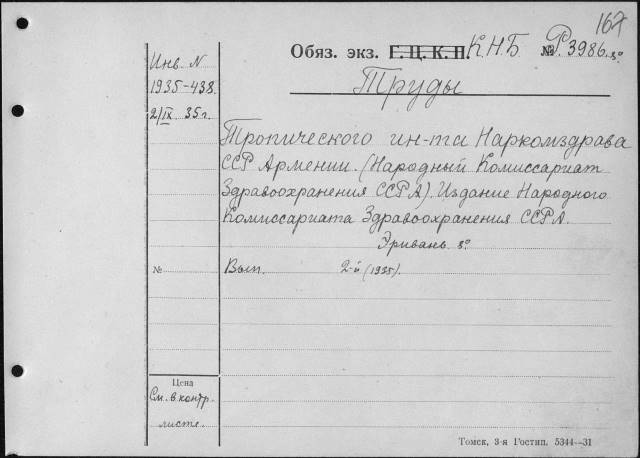 167
Обяз. экз. Г.Ц.К.П. К.Н.Б № Р3986. 8°
Труды
Инв. N
1935-438.
2/IX 35 г.
Тропического ин-та Наркомздрава
ССР Армении. (Народный Комиссариат
Здравоохранения ССРА). Издание Народного
Комиссариата Здравоохранения ССРА.
Эривань 8°
№ Вып. 2-й (1935).
Цена
См. в контр.
листе.
Томск, 3-я Гостип. 5344—31